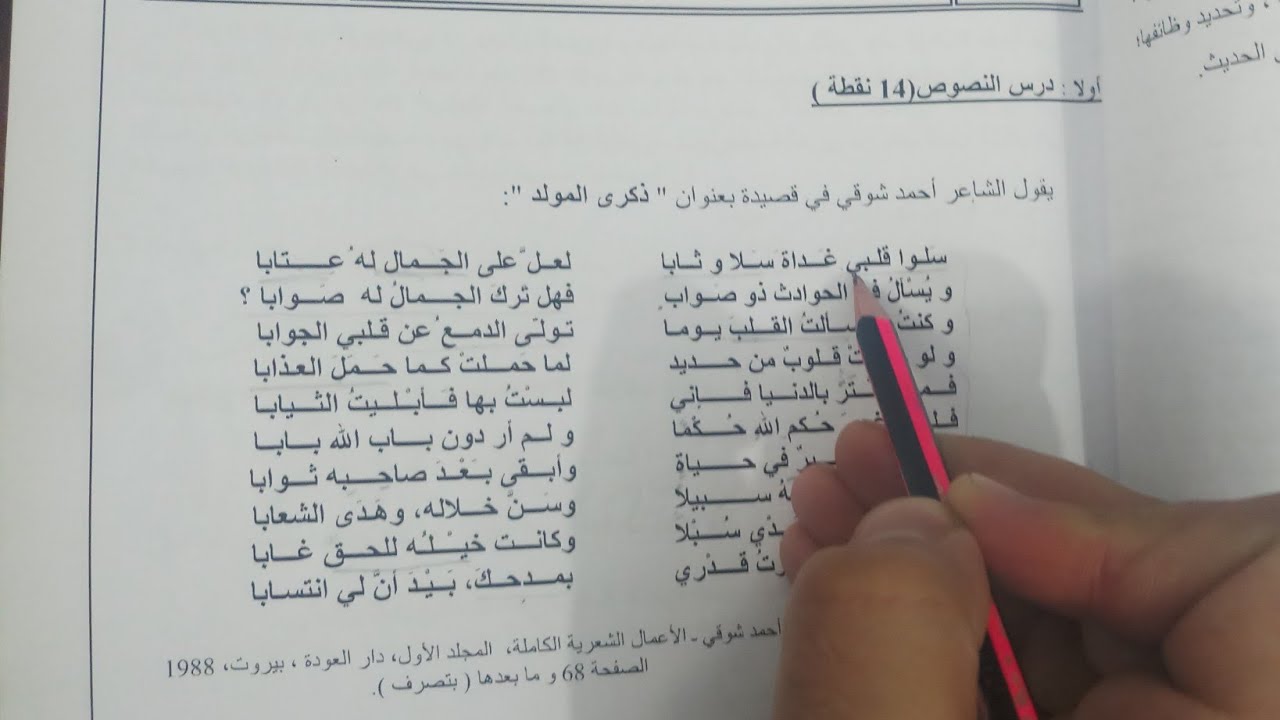 ، وتحديد وظائفها!
الحديث.
أولا : درس النصوص(14 نقطة )
يقول الشاعر أحمد شوقي في قصيدة بعنوان " ذكرى المولد ":
سَلوا قلبي غَداةَ سَلا و ثابا لعلَّ على الجَمال لهُ عِتابا
و يُسْألُ الحوادث ذو صوابٍ فهل ترك الجمالُ له صَوابا ؟
و كنتُ سألتُ القلبَ يوما تولّى الدمعُ عن قلبي الجوابا
و لو قلوبٌ من حديد لما حَملتْ كما حَمَلَ العذابا
بالدنيا فإني لبستُ بها فأبْليتُ الثيابا
حُكم الله حُكْما و لم أر دون باب الله بابا
في حياة وأبقى بَعْدَ صاحِبه ثوابا
سبيلا وسَنَّ خلاله، وهَدَى الشعابا
سُبْلا وكانت خيْلُه للحق غابا
قدْري بمدحِكَ، بَيْدَ أنَّ لي انتسابا
أحمد شوقي ـ الأعمال الشعرية الكاملة، المجلد الأول، دار العودة ، بيروت، 1988
الصفحة 68 و ما بعدها ( بتصرف ).